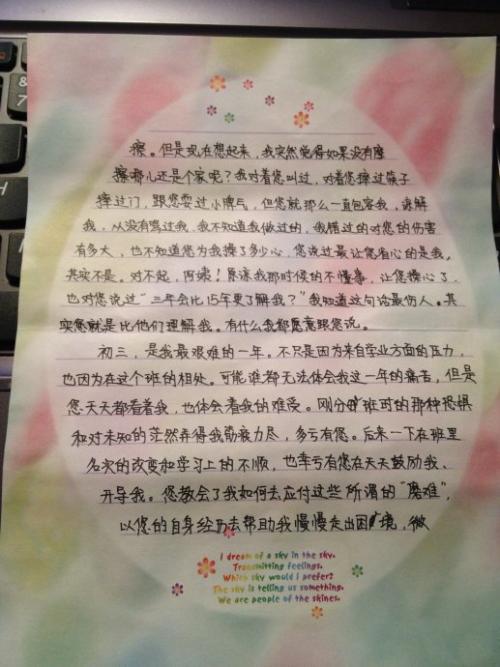 擦。但是现在想起来，我突然觉得如果没有摩
擦哪儿还是个家呢？我对着您叫过，对着您摔过筷子
摔过门，跟您耍过小脾气，但您就那么一直包容我，谅解
我，从没有骂过我。我不知道我做过的，我错过的对您的伤害
有多大，也不知道您为我操了多少心，您说过最让您省心的是我。
其实不是。对不起，阿姨！原谅我那时候的不懂事，让您操心了。
也对您说过“三年会比15年更了解我？”我知道这句话最伤人。其
实您就是比他们理解我。有什么我都愿意跟您说。
初三，是我最艰难的一年。不只是因为来自学业方面的压力，
也因为在这个班的相处。可能谁都无法体会我这一年的痛苦，但是
您天天都看着我，也体会着我的难受。刚分班时的那种恐惧
和对未知的茫然弄得我筋疲力尽，多亏有您。后来一下在班里
名次的改变和学习上的不顺，也幸亏有您在天天鼓励我、
开导我。您教会了我如何去应付这些所谓的“磨难”，
以您的自身经历去帮助我慢慢走出困境，微
I dream of a sky in the sky.
Transmitting feelings.
Which sky would I prefer?
The sky is telling us something.
We are people of the skines.